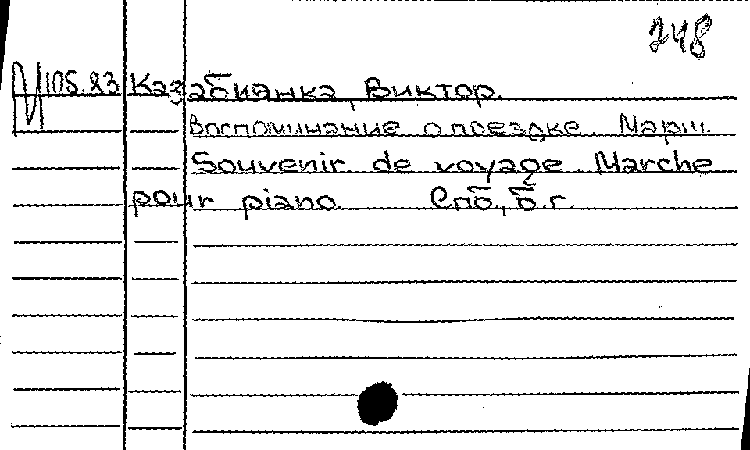 248
И 105.83 Казабианка, Виктор.
Воспоминание о поездке. Марш.
Souvenir de voyage. Marche
pour piano. Спб., б.г.